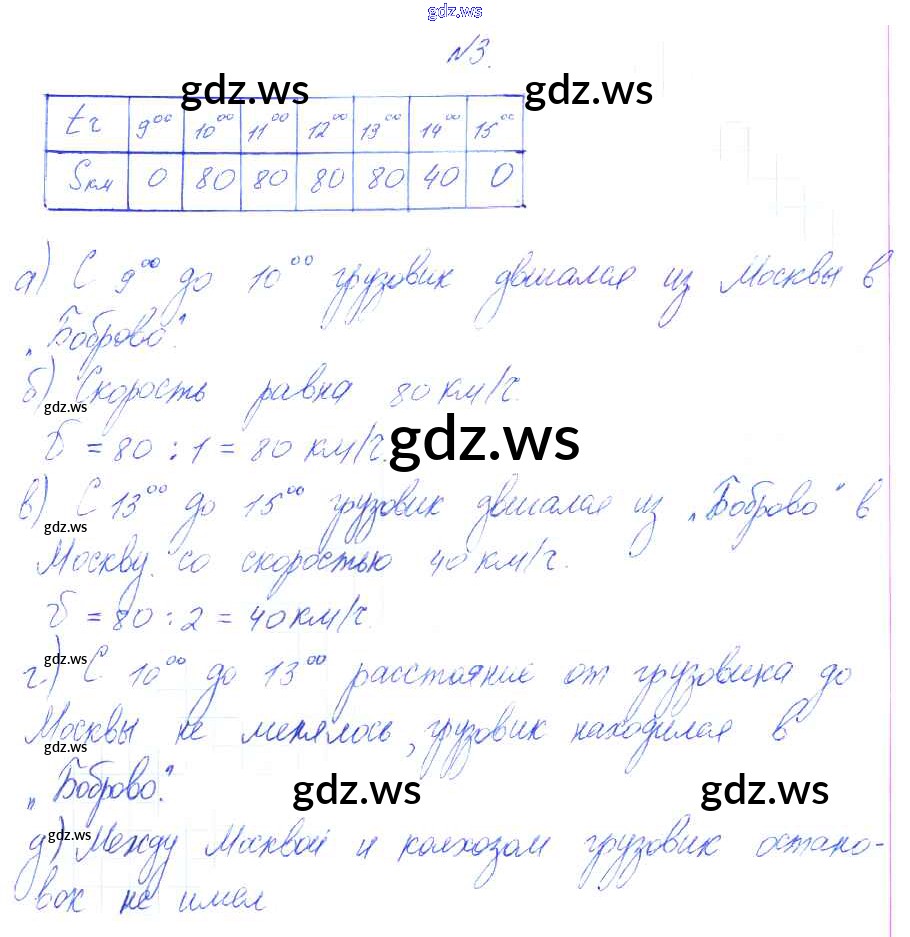 gdz.ws
№3.
gdz.ws gdz.ws
t ч 9⁰⁰ 10⁰⁰ 11⁰⁰ 12⁰⁰ 13⁰⁰ 14⁰⁰ 15⁰⁰
S км 0 80 80 80 80 40 0
а) С 9⁰⁰ до 10⁰⁰ грузовик двигался из Москвы в
„Боброво".
б) Скорость равна 80 км/ч.
gdz.ws
gdz.ws
v = 80 : 1 = 80 км/ч.
в) С 13⁰⁰ до 15⁰⁰ грузовик двигался из „Боброво" в
gdz.ws
Москву со скоростью 40 км/ч.
v = 80 : 2 = 40 км/ч.
gdz.ws
г) С 10⁰⁰ до 13⁰⁰ расстояние от грузовика до
Москвы не менялось, грузовик находился в
gdz.ws
„Боброво".
gdz.ws gdz.ws
gdz.ws
д) Между Москвой и колхозом грузовик остано-
вок не имел